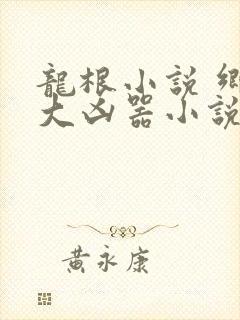 龍根小說 鄉
大凶器小說
黃永康